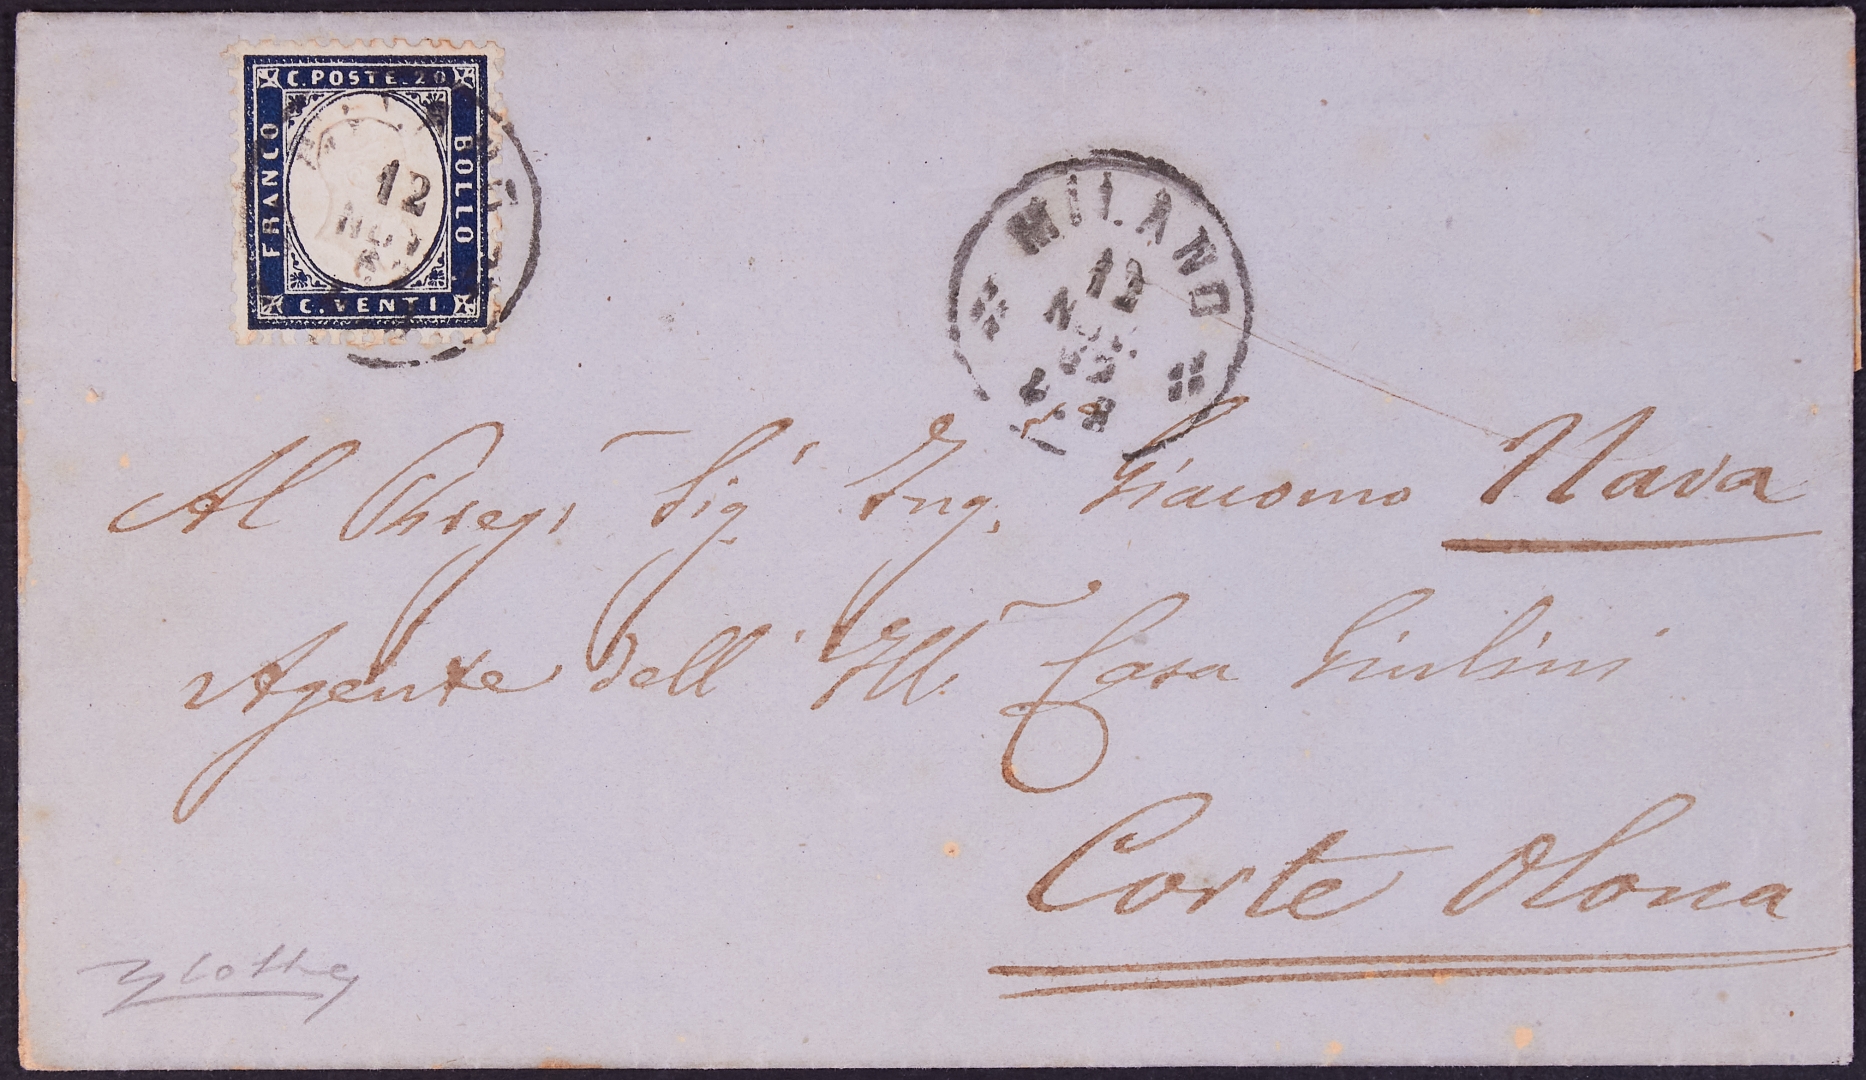 C. POSTE. 20
FRANCO
BOLLO
C. VENTI
12
NOV
MILANO
12
NOV.
62
Al Preg. Sig. Ing. Giacomo Nava
Agente dell' Ill. Casa Giulini
Corte Olona